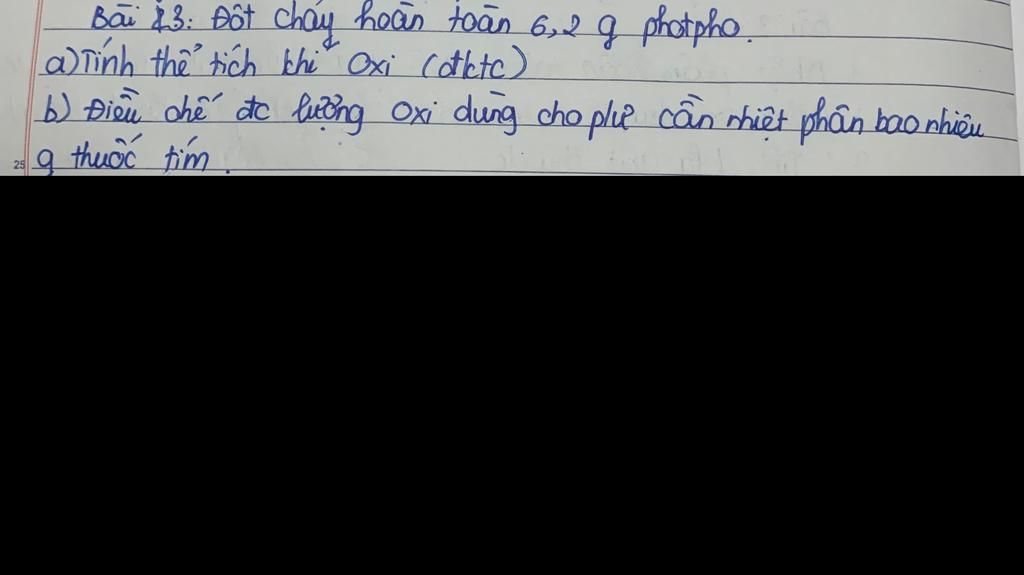 Bài 13: Đốt cháy hoàn toàn 6,2 g photpho.
a) Tính thể tích khí Oxi (đktc)
b) Điều chế đc lượng Oxi dùng cho pứ cần nhiệt phân bao nhiêu
25 g thuốc tím.